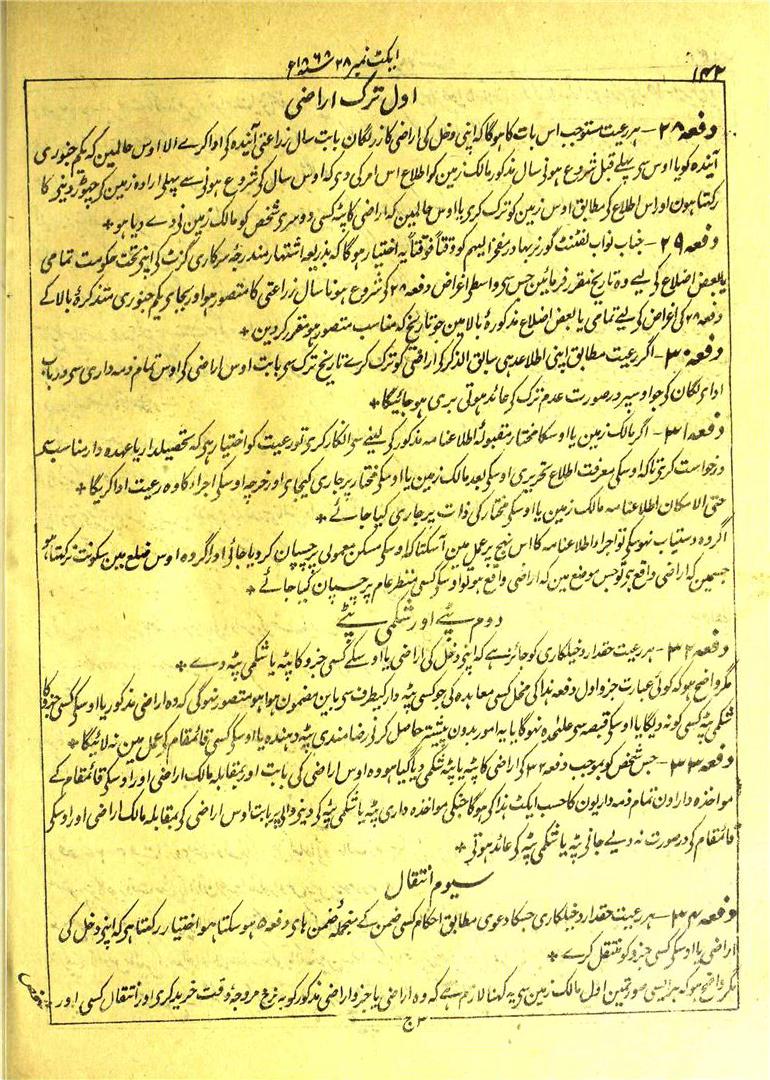 ۱۴۲
ایکٹ نمبر ۲۸ سنہ ۱۸۶۸ء
اول ترک اراضی
دفعہ ۲۸ - ہر رعیت مستوجب اس بات کا ہوگا کہ اپنی دخل کی اراضی کا زر لگان بابت سال زراعتی آیندہ کی ادا کرے الا اوس حالمین کہ یکم جنوری
آیندہ کو یا اوس سی پہلے قبل شروع ہونی سال مذکور مالک زمین کو اطلاع اس امر کی دی کہ اوس سال کی شروع ہونی سے پہلی ارادہ زمین کی چھوڑ دینی کا
رکھتا ہون اور اس اطلاع کی مطابق اوس زمین کو ترک کری یا اوس حالمین کہ اراضی کا پٹہ کسی دوسری شخص کو مالک زمین نی دے دیا ہو *
دفعہ ۲۹ - جناب نواب لفٹنٹ گورنر بہادر مفخر الیہم کو وقتاً فوقتاً یہ اختیار ہوگا کہ بذریعہ اشتہار مندرجہ سرکاری گزٹ کی اپنی تحت حکومت تمامی
یا بعض اضلاع کی لیے وہ تاریخ مقرر فرمائین جس سی واسطی اغراض دفعہ ۲۸ کی شروع ہونا سال زراعتی کا متصور ہو اور بجای یکم جنوری متذکرہ بالا کے
دفعہ ۲۸ کی اغراض کی لیے تمامی یا بعض اضلاع مذکورہ بالا مین جو تاریخ کہ مناسب متصور ہو مقرر کردین *
دفعہ ۳۰ - اگر رعیت مطابق اپنی اطلاعدہی سابق الذکر کی اراضی کو ترک کرے تاریخ ترک سی بابت اوس اراضی کی اوس تمام ذمہ داری سی درباب
ادای لگان کی جو اوسپر درصورت عدم ترک کی عائد ہوتی بری ہو جائیگا *
دفعہ ۳۱ - اگر مالک زمین یا اوسکا مختار مقبولہ اطلاعنامہ مذکور کی لینے سی انکار کری تو رعیت کو اختیار ہی کہ تحصیلدار یا عہدہ دار مناسب سے
درخواست کری تاکہ اوسکی معرفت اطلاع تحریری اوسکی بعد مالک زمین یا اوسکی مختار پر جاری کیجای اور خرچہ اوسکی اجرا کا وہ رعیت ادا کریگا *
حتی الامکان اطلاعنامہ مالک زمین یا اوسکی مختار کی ذات پر جاری کیا جائے *
اگر وہ دستیاب نہو سکی تو اجرا اطلاعنامہ کا اس نہج پر عمل مین آسکتا کہ اوسکی مسکن معمولی پر چسپان کر دیا جائی اور اگر وہ اوس ضلع مین سکونت نرکھتا ہو
جسمین کہ اراضی واقع ہی تو جس موضع مین کہ اراضی واقع ہو تو اوسکی کسی منظر عام پر چسپان کیا جائے *
دوم پٹے اور شکمی پٹے
دفعہ ۳۲ - ہر رعیت حقدار دخیلکاری کو جائز ہے کہ اپنی دخل کی اراضی یا اوسکے کسی جزو کا پٹہ یا شکمی پٹہ دے *
مگر واضح ہو کہ کوئی عبارت جزو اول دفعہ ہذا کی مخل کسی معاہدہ کی جو کسی پٹہ دار کیطرف سی باین مضمون ہوا ہو متصور نہوگی کہ وہ اراضی مذکور یا اوسکی کسی جزو کا
شکمی پٹہ کسی کو نہ دیگا یا اوسکی قبضہ سی علحدہ نہوگا یا یہ امور بدون پیشتر حاصل کرنی رضامندی پٹہ دہندہ یا اوسکی کسی قائمقام کی عمل مین نہ لائیگا *
دفعہ ۳۳ - جس شخص کو بموجب دفعہ ۳۲ کی اراضی کا پٹہ یا پٹہ شکمی دیا گیا ہو وہ اوس اراضی کی بابت اور بمقابلہ مالک اراضی اور اوسکی قائمقام کے
مواخذہ دار اون تمام ذمہ داریون کا حسب ایکٹ ہذا کی ہوگا جنکی مواخذہ داری پٹہ یا شکمی پٹہ کی دینی والی پر بابت اوس اراضی کی بمقابلہ مالک اراضی اور اوسکی
قائمقام کی درصورت نہ دیے جانی پٹہ یا شکمی پٹہ کی عائد ہوتی *
سیوم انتقال
دفعہ ۳۴ - ہر رعیت حقدار دخیلکاری جسکا دعوی مطابق احکام کسی ضمن کے منجملہ ضمن ہای دفعہ ۵ ہو سکتا ہو اختیار رکھتا ہی کہ اپنے دخل کی
اراضی یا اوسکی کسی جزو کو منتقل کرے *
مگر واضح ہو کہ ہر ایسی صورتمین اول مالک زمین سی یہ کہنا لازم ہے کہ وہ اراضی یا جزو اراضی مذکور کو بہ نرخ مروجہ وقت خرید کری اور انتقال کسی اور شخص
ج ۳